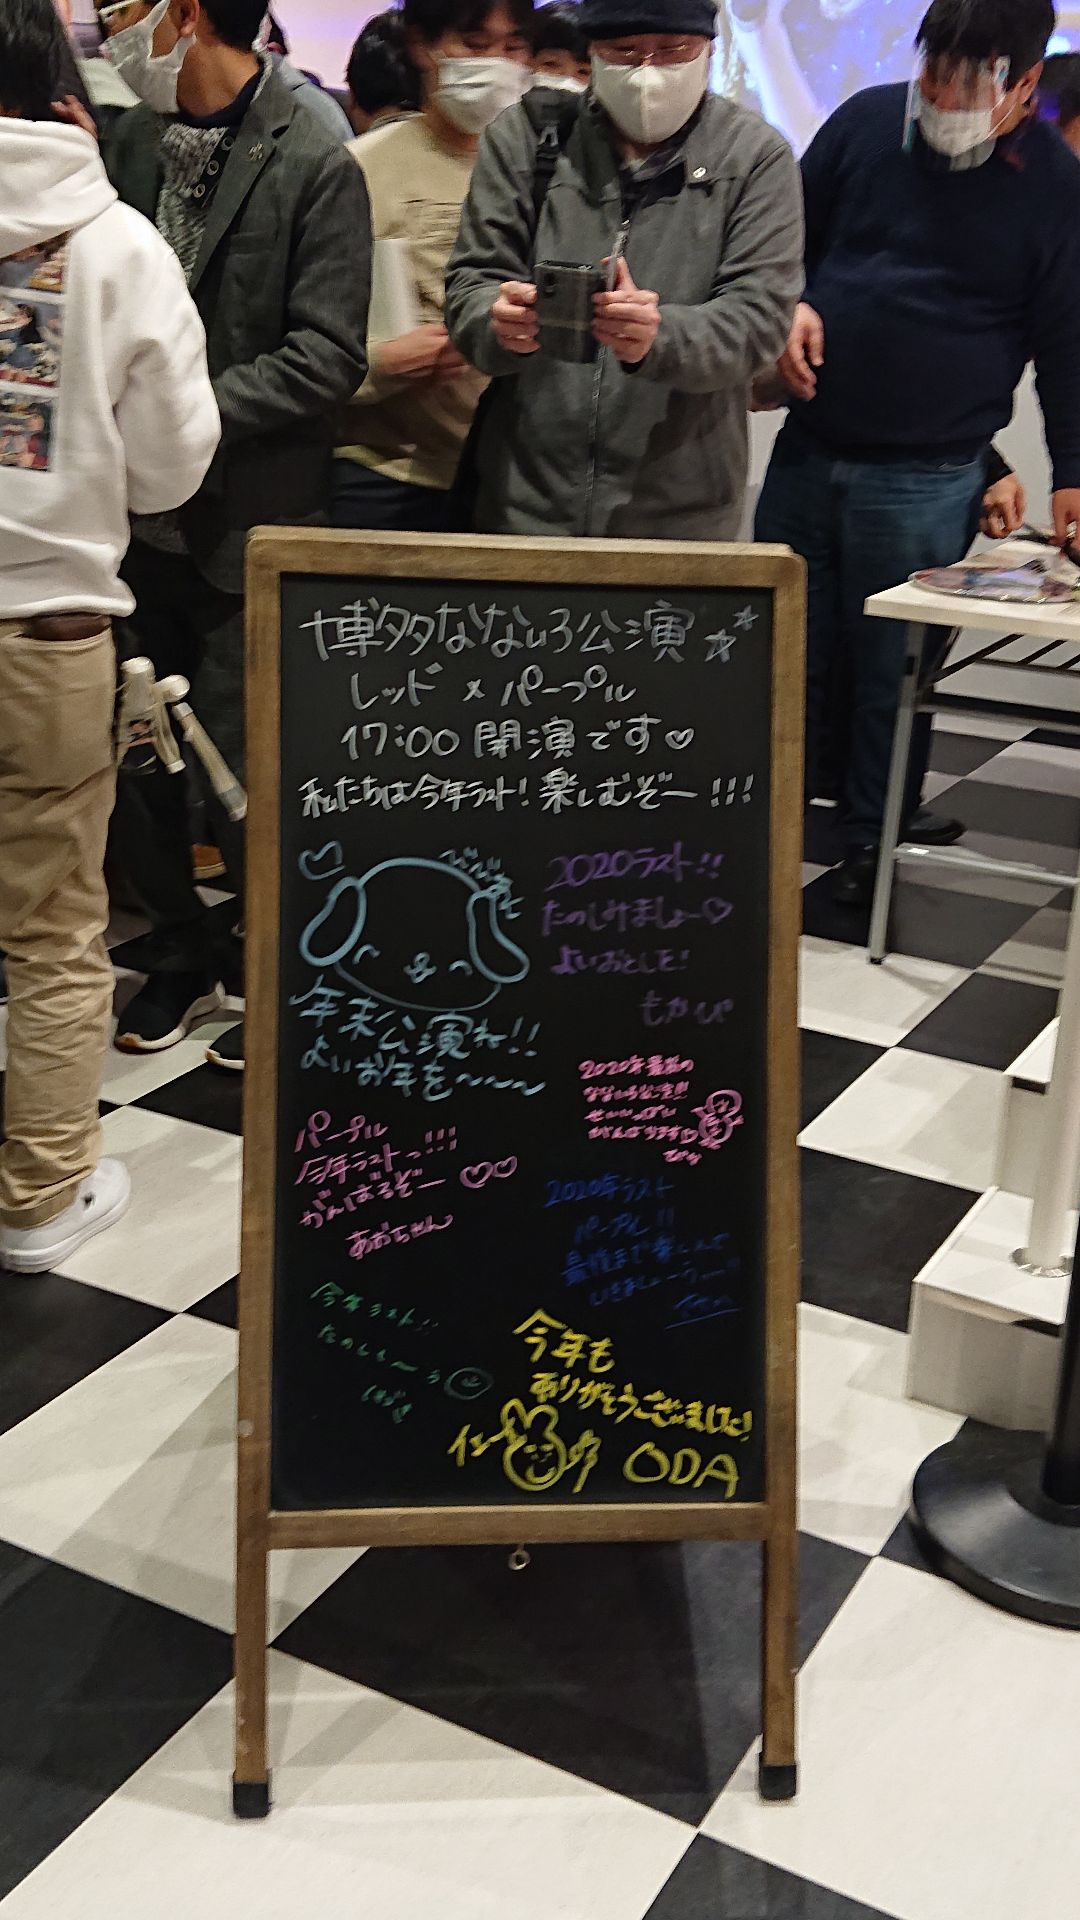 博多なないろ公演
レッド×パープル
17:00 開演です♡
私たちは今年ラスト！楽しむぞー！！！
2020ラスト！！
たのしみましょー♡
よいおとしを！
もかぴ
年末公演ね！！
よいお年を～～～
2020年最後の
なないろ公演!!
せいいっぱい
がんばります
パープル
今年ラストっ！！！
がんばるぞー ♡♡
あおちゃん
2020年ラスト
パープル！！
最後まで楽しんで
いきましょーう
今年ラスト！！
たのしも〜う
今年も
ありがとうございました！
ODA